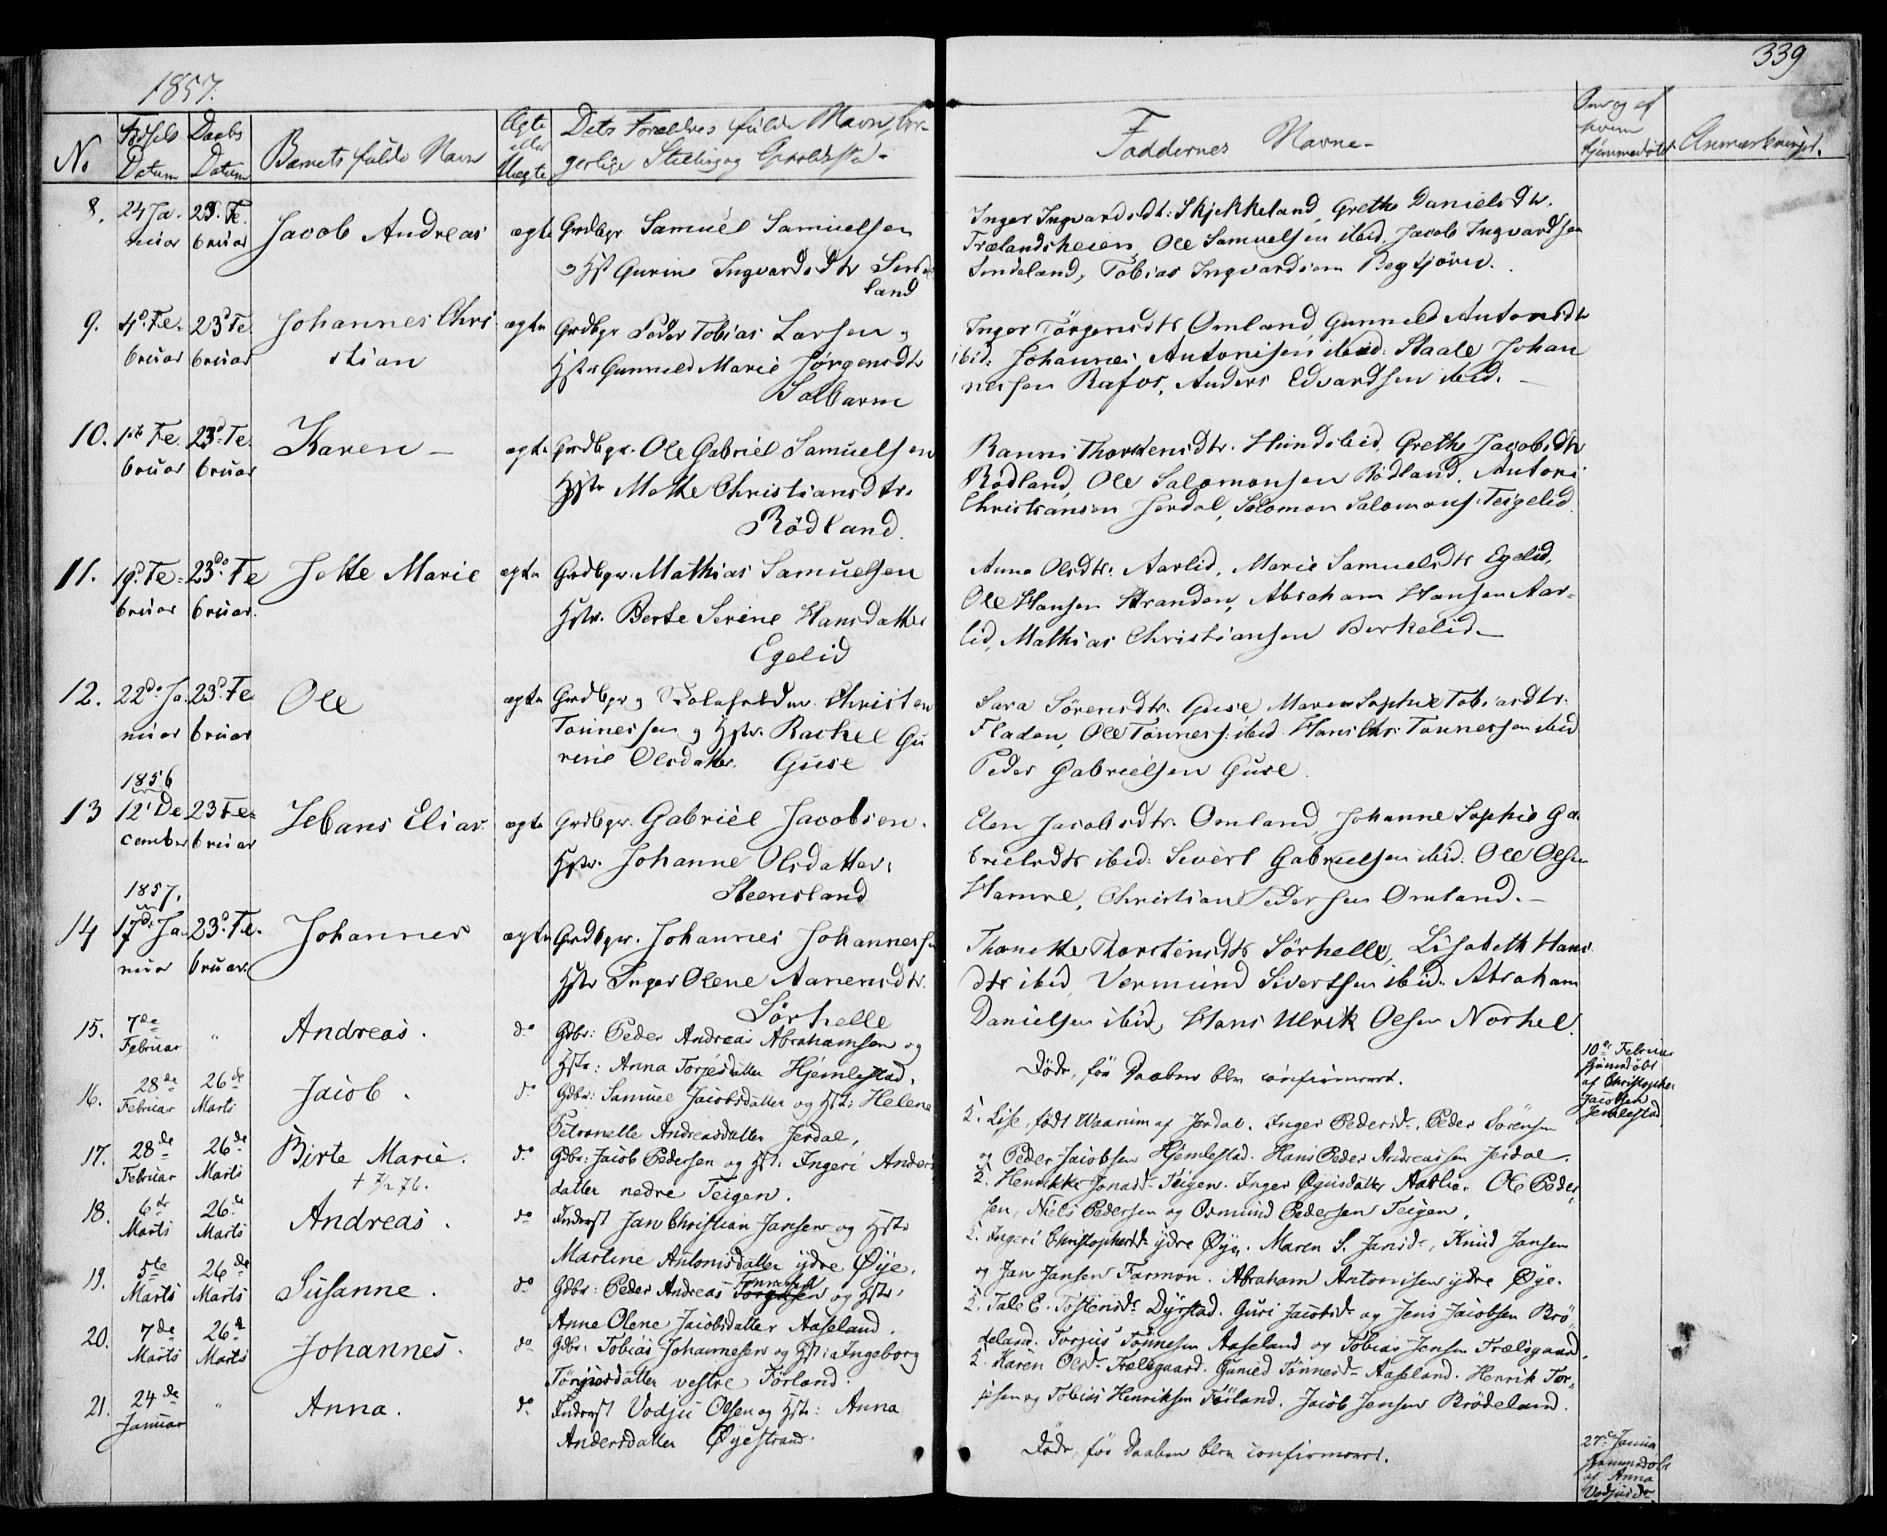 339
1857.
No
Fødsels Datum
Daabs Datum
Barnets fulde Navn
Ægte eller Uægte
Dets Forældres fulde Navn, bor-
gerlige Stilling og Opholdsted.
Faddernes Navne.
Om og af hvem hjemmedøbt
Anmærkninger.
8. 24 Ja- 23d Fe-
nuar bruar Jacob Andreas ægte Grdbgr Samuel Samuelsen
Hst Gurine Ingvardsdtr
land
Inger Ingvardsdt: Skjekkeland, Grethe Danielsdtr.
Trælandsheien, Ole Samuelsen ibid. Jacob Ingvardsen
Tobias Ingvardsen
9. 4d Fe- 23d Fe- Johannes Chri ægte Grdbgr Peder Tobias Larsen og
bruar bruar stian Hstr Gunnild Marie Jørgensdtr
Inger Jørgensdtr Omland, Gunnild Antonsdtr
ibid: Johannes Antonisen ibid: Staale Johan
nessen Rafos, Anders Edvardsen ibid. —
10. 1ste Fe- 23d Fe- Karen — ægte Grdbgr. Ole Gabriel Samuelsen
bruar bruar Hstr Mette Christiansdtr.
Rødland.
Grethe Jacobsdtr
Rødland, Ole Salomonsen Rødland, Antoni
Christiansen Jerdal, Salomon Salomons. Teigelid
11. 19d Fe- 23de Fe Jette Marie ægte Grdbgr. Mathias Samuelsen
bruar bruar. Hstr. Berte Serine Hansdatter
Egelid
Anne Olsdtr. Aarlid, Marie Samuelsdtr Egelid,
Ole Hansen Stranden, Abraham Hansen Aar-
lid, Mathias Christiansen Birkelid. —
12. 22de Ja- 23d Fe Ole ægte Grdbgr og Christen
nuar bruar Tønnessen og Hstr. Rachel Gu
rine Olsdatter. Guse
Sara Sørensdtr. Guse Maren Sophie Tobiasdtr.
Fladen, Ole Tønness: ibid. Hans Chr. Tønnessen ibid
Peder Gabrielsen Guse.
1856
13 12t De 23 Fe- Elias ægte Grdbgr. Gabriel Jacobsen.
cember bruar Hstr. Johanne Olsdatter.
Steensland
Elen Jacobsdtr. Omland, Johanne Sophie Ga
brielsdtr ibid: Sivert Gabrielsen ibid: Ole Olsen
Hamre, Christian Pedersen Omland. —
1857.
14 17de Ja- 23d Fe- Johannes ægte Grdbgr. Johannes Johannessen
nuar bruar. Hstr Inger Olene Aanensdtr.
Sørhelle
Thonette Thorstensdtr Sørhelle, Lisabeth Hans
dtr ibid, Vermund Sivertsen ibid. Abraham
Danielsen ibid, Hans Ulrik Olsen Norhel.
15. 7de Februar " Andreas. do Gdbr: Peder Andreas Abrahamsen og
Hstr: Anna Torjesdatter Hjemlestad.
Døde, før Daaben blev confirmeret.
10de Februar
hjemdøbt
af Christopher
Jacobsen
Jemlestad.
16. 28de Februar 26de Marts Jacob. do Gdbr: Samuel Jacobsdatter og Hst: Helene
Petronelle Andreasdatter Jerdal,
Lise, født Waarum af Jerdal. Inger Pedersd., Peder Sørensen
og Peder Jacobsen Hjemlestad. Hans Peder Andreassen Jerdal.
17. 28de Februar 26de Marts Birte Marie. do Gdbr: Jacob Pedersen og Hst: Ingeri Anders
† 7/12 76. datter nedre Teigen.
Jonasd. Teigen. Inger Aarlie. Ole Peder
sen, Niels Pedersen og Osmund Pedersen Teigen.
18. 6te Marts 26de Marts Andreas. do Inderst Jan Christian Jansen og Hstr
Martine Antonisdatter ydre Øye.
Ingeri Christophersd. ydre Øye. Maren S. Jansd., Knud Jansen
og Jan Jansen Farmon. Abraham Antonisen ydre Øye.
19. 5te Marts 26de Marts Susanne. do Gdbr: Peder Andreas Tønnesen og Hstr.
Anne Olene Jacobsdatter Aaseland.
Tale E. Tostensd. Dyrstad. Guri Jacobsd. og Jens Jacobsen Brø
deland. Torjus Tønnesen Aaseland og Tobias Jensen Frælsgaard.
20. 7de Marts 26de Marts Johannes. do Gdbr: Tobias Johannesen og Hst: Ingeborg
Tønnesdatter vestre Førland.
Karen Olsd. Frælsgaard. Gunild Tønnesd. Aaseland. Henrik Tor-
jesen og Tobias Henriksen Førland. Jacob Jensen Brødeland.
21. 24de Januar " Anna. do Inderst Vodju Olsen og Hstr: Anna
Andersdatter Øyestrand.
Døde, før Daaben blev confirmeret.
27de Janua
hjemmedøbt
af Anna
Vodjusd.